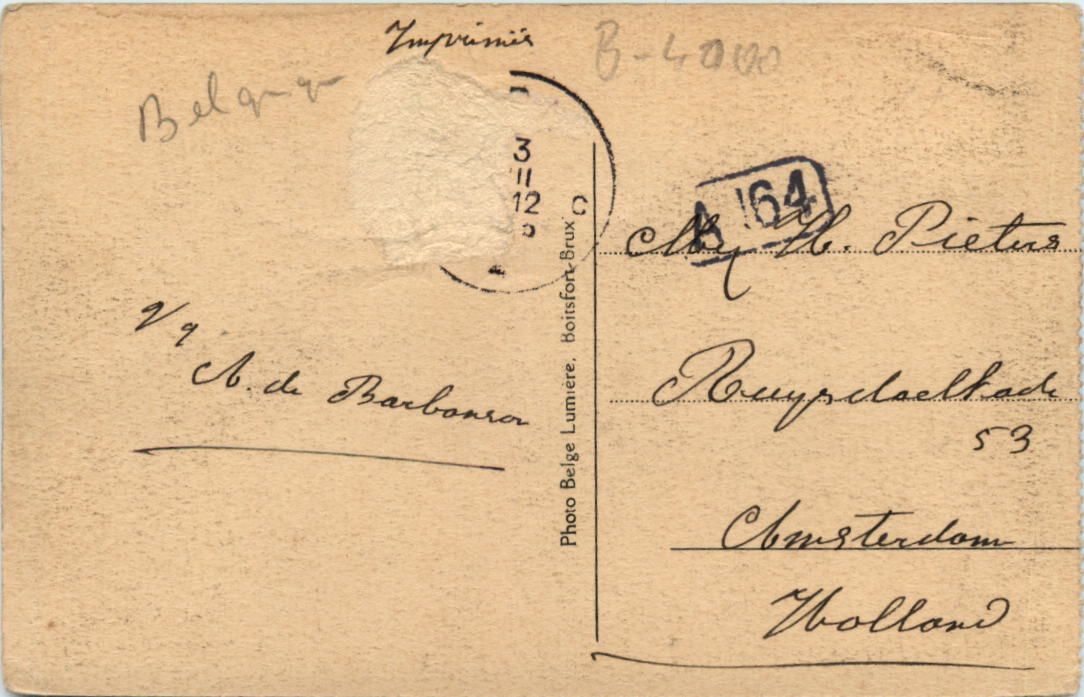 Imprimés
B-4000
Belgique
3
II
12
A 164
H. Pieters
Ruysdaelkade
53
Amsterdam
Holland
A. de Barbanson
Photo Belge Lumière, Boitsfort-Brux.